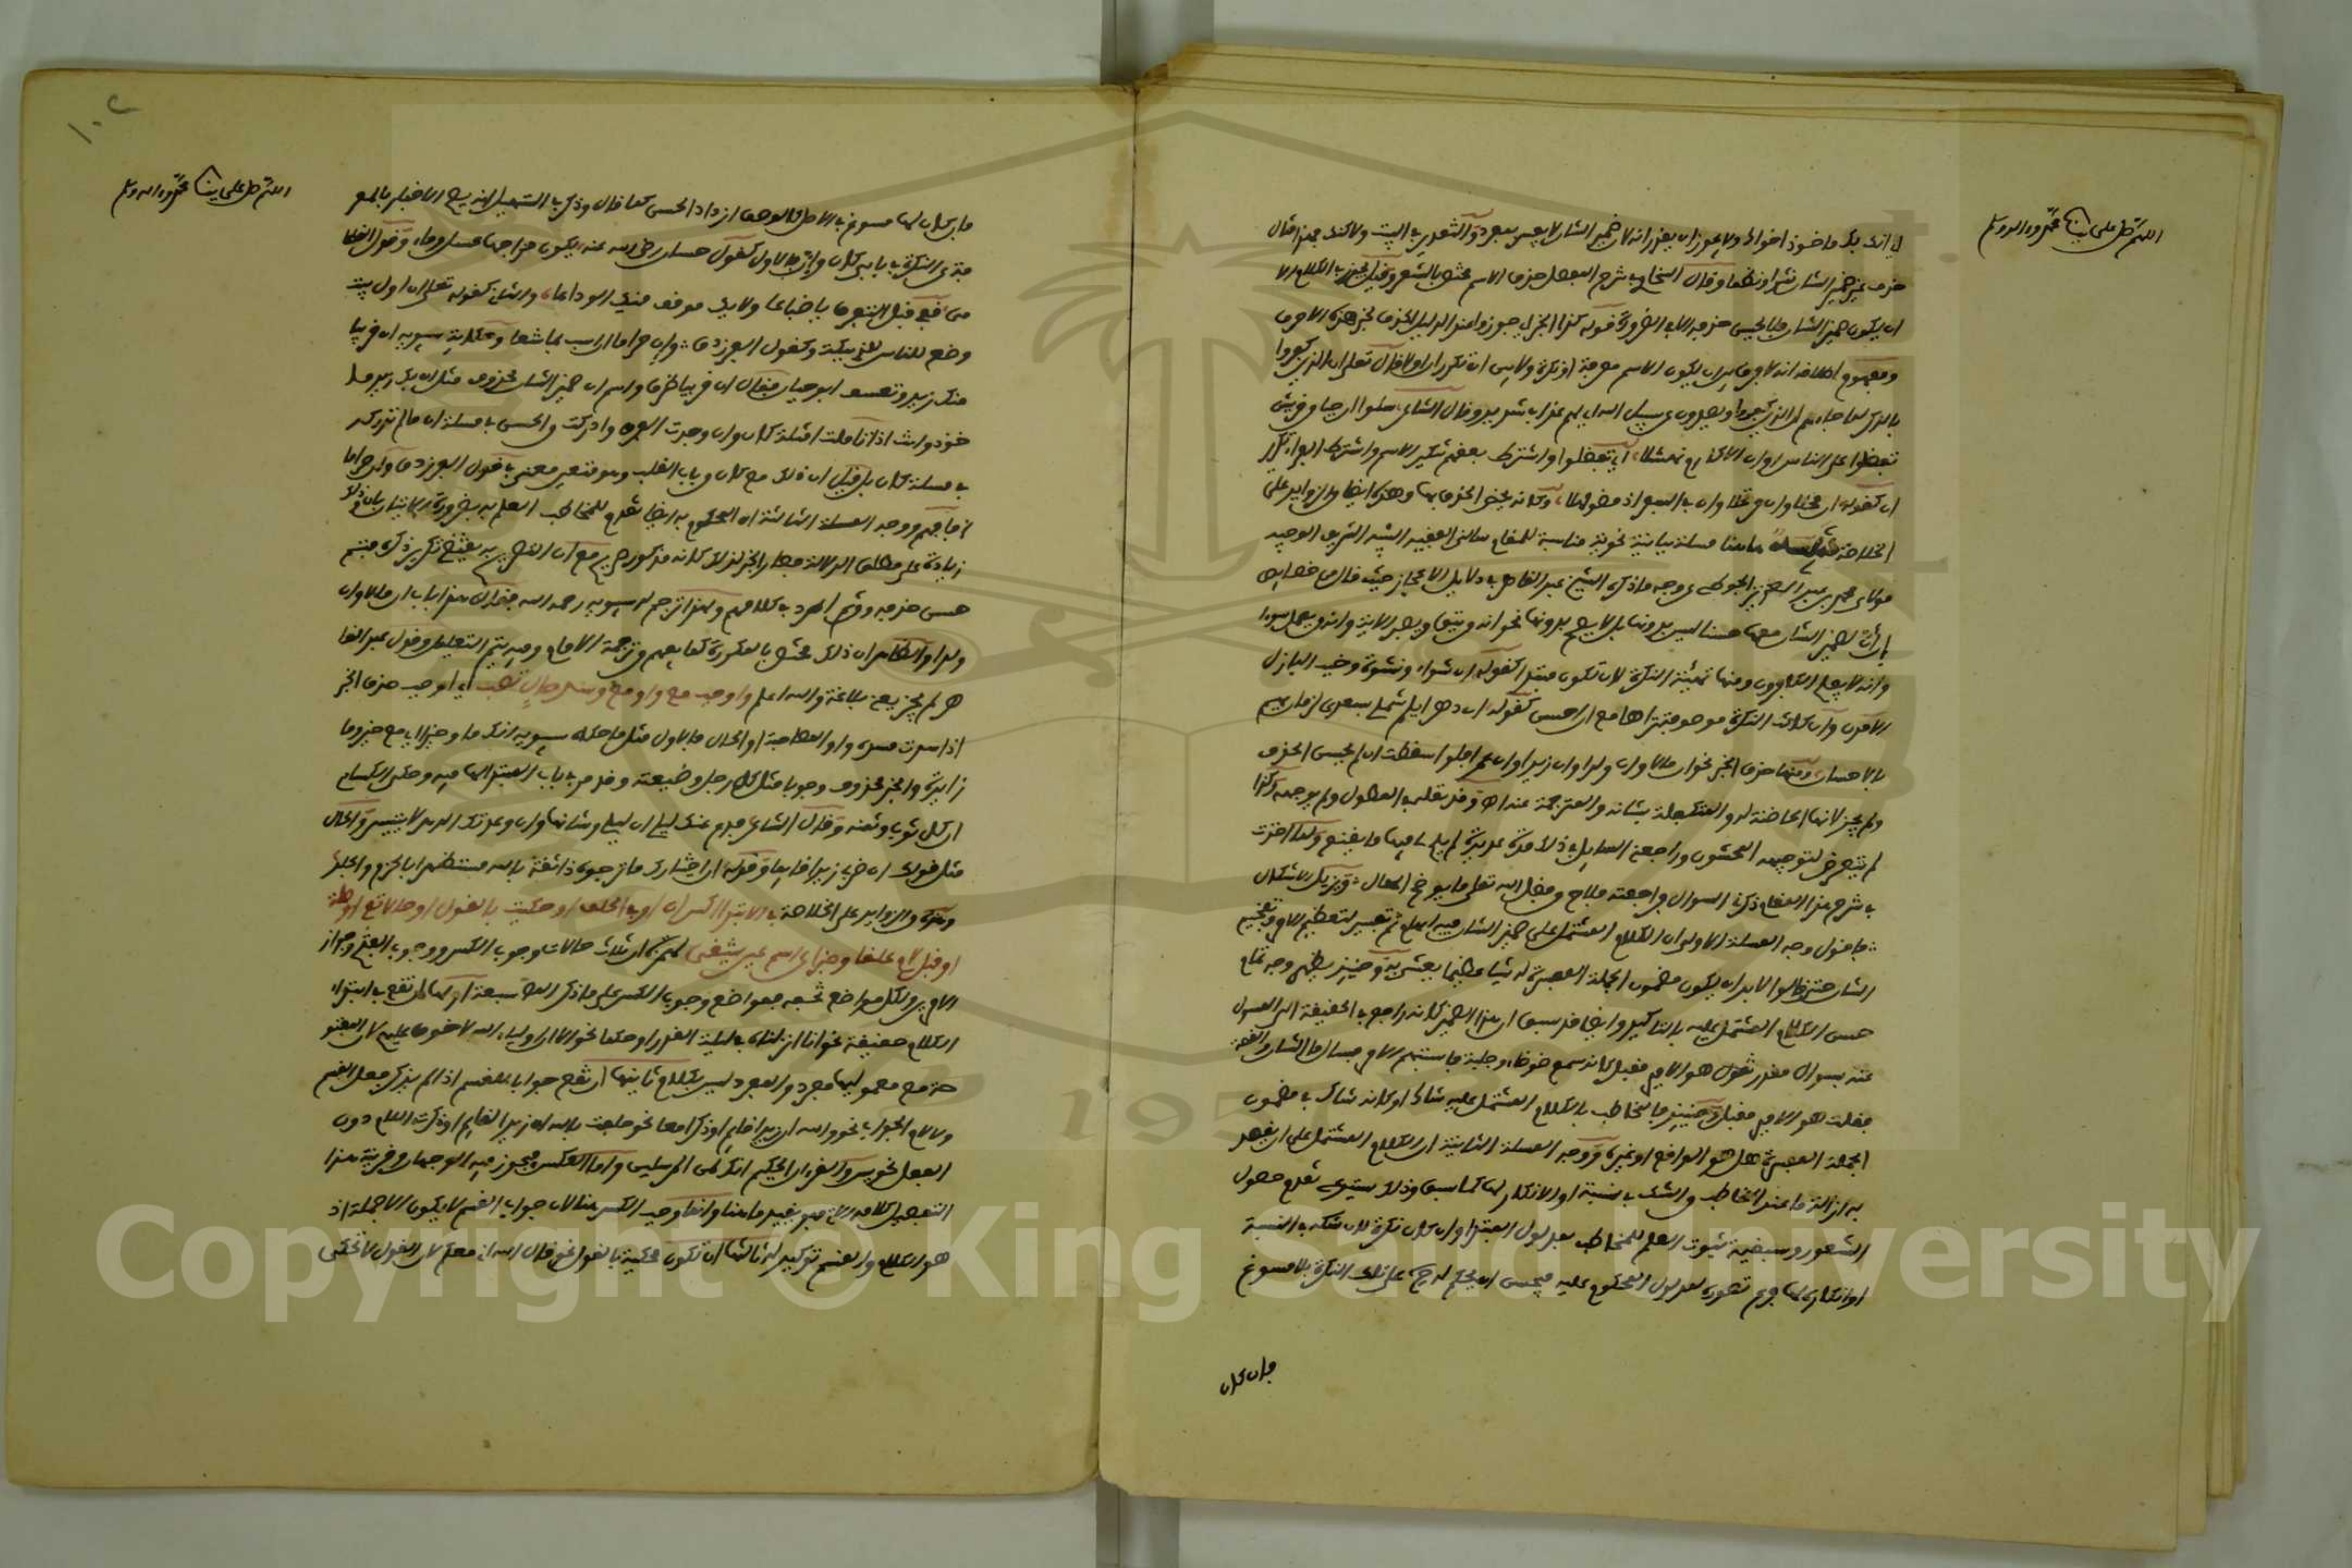 اللهم صل على نبينا محمد وآله وسلم
لي إنك بك ماخوذ اخواك ولا يجوز ان يقدر انه لان ضمير الشان لا يفسر بمفرد والتقدير في البيت ولاكنك فهذا مثال
حذف غير ضمير الشان نثرا ونظما وقال السخاوي في شرح المفصل حذف الاسم مختص بالشعر وقيل يجوز في الكلام الا
ان يكون ضمير الشان فلا يحسن حذفه الا في الضرورة قوله كذا الخبر اي جوزوا عند الدليل حذف خبر هذه الاحرف
ومفهوم اطلاقه انه لا فرق بين ان يكون الاسم معرفة او نكرة ولا بين ان تكرر ان اولا قال تعلى ان الذين كفروا
بالذكر لما جاءهم ان الذين كفروا ويصدون عن سبيل الله اي لهم عذاب شديد وقال الشاعر سلوا ان حيا من قريش
تفضلوا على الناس او ان الاكارم نهشلا اي تفضلوا واشترط بعضهم تنكير الاسم واشترط الفراء تكرار
ان كقوله ان محلا وان مرتحلا وان في السفر اذ مضوا مهلا
الخلاصة هاهنا مسئلة بيانية نحوية مناسبة للمقام سالني الفقيه النبيه الشريف الوجيه
مولاي محمد بن عبد العزيز عن وجه ما ذكره الشيخ عبد القاهر في دلايل الاعجاز حيث قال من خصايص
ان لضمير الشان معها حسنا ليس بدونها بل لا يصح بدونها نحو انه من يتق ويصبر الاية وانه من يعمل سوءا
وانه لا يفلح الكافرون ومنها تهيئة النكرة لان تكون مبتدا كقوله ان شواء ونشوة وخبب البازل
الامون وان كانت النكرة موصوفة تراها مع ان احسن كقوله ان دهرا يلم شملي بسعدى لزمان يهم
بالاحسان ومنها حذف الخبر نحو ان مالا وان ولدا وان زيدا وان عمرا فلو اسقطت ان لم يحسن الحذف
ولم يجز لانها الحاضنة له والمتكفلة بشانه والمترجمة عنه اه وقد نقله في المطول ولم يوجهه وكذا
لم يتعرض لتوجيهه المحشون وراجعني السايل في ذلك مدة مديدة لم يلم بنا فيها ما يقنع ولما اخذت
في شرح هذا المقام ذكرت السوال فراجعته فلاح من فضل الله تعلى ما يوضح المقال ويزيل الاشكال
فاقول وجه المسئلة الاولى ان الكلام المشتمل على ضمير الشان فيه ابهام ثم تفسير لتعظيم الامر وتفخيم
الشان حتى قالوا لابد ان يكون مضمون الجملة المفسرة له شيا عظيما يعتنى به وحينئذ يظهر وجه تمام
حسن الكلام المشتمل عليه بالتاكيد وايضا قد سبق ان هذا الضمير كانه راجع في الحقيقة الى المسول
عنه بسوال مقدر تقول هو الامير مقبل كانه سمع ضوضاء وجلبة فاستبهم الامر فسال ما الشان والقصة
فقلت هو الامير مقبل وحينئذ فالمخاطب بالكلام المشتمل عليه شاك او كانه شاك في مضمون
الجملة المفسرة هل هو الواقع او غيره ووجه المسئلة الثانية ان الكلام المشتمل على ان يقصد
به ازالة ما عند المخاطب من الشك في نسبة او الانكار لها كما سبق وذلك يستدعي تقدم حصول
الشعور وسبقية ثبوت العلم للمخاطب بمدلول المبتدا وان كان نكرة لان شكه في النسبة
او انكاره لها فرع تصوره لمدلول المحكوم عليه فيحسن ان يحكم له على تلك النكرة بلا مسوغ
فان كان
١٠٢
اللهم صل على نبينا محمد وآله وسلم
فان كان لها مسوغ في الاصل كالوصف ازداد الحسن كما قال وذكر في التسهيل انه يصح الاخبار بالمع
فة عن النكرة في باب كان وان فالاول كقول حسان رضي الله عنه يكون مزاجها عسل وماء وقول القطا
مي قفي قبل التفرق يا ضباعا ولا يك موقف منك الوداعا والثاني كقوله تعلى ان اول بيت
وضع للناس للذي ببكة وكقول الفرزدق وان حراما ان اسب مقاعسا وحكاية سيبويه ان قريبا
منك زيد وتعسف ابو حيان فقال ان قريبا ظرف واسم ان ضمير الشان محذوف مثل ان بك زيد ما
خوذ وانت اذا تاملت امثلة كان وان وجدت الفرق وادركت الحسن في مسئلة ان ما لم تدركه
في مسئلة كان بل قيل ان ذلك مع كان من باب القلب وهو متعين معنى في قول الفرزدق وان حراما
فافهم ووجه المسئلة الثالثة ان المحكوم به ايضا تقدم للمخاطب العلم به بضرورة
زيادة على مطلق الدلالة فصار الخبر لذلك كانه مذكور صريح مع ان التصريح به يقتضي تكرير ذكره فيتم
حسن حذفه وقد اطرد في كلامهم ولهذا ترجم له سيبويه رحمه الله فقال هذا باب ان مالا وان
ولدا والظاهر ان ذلك مختص بالمكسورة كما يفهم من ترجمة الامام وفيه يتم التعليل وقول عبد القا
هر لم يجز يعني بلاغة والله اعلم واوجب مع واو مع وسد حال نصب اي اوجب حذف الخبر
اذا سدت مسده واو المصاحبة او الحال فالاول مثل ما حكاه سيبويه انك ما وخيرا اي مع خير وما
زايدة والخبر محذوف وجوبا مثل كل رجل وضيعته وقد مر في باب المبتدا ما فيه وحكى الكسائي
ان كل ثوب وثمنه وقال الشاعر فدع عنك ليلى ان ليلى وشانها وان وعدتك الوعد لا يتيسر والحال
مثل قولك ان ضربي زيدا قايما وقوله ان اختيارك ما ترجوه ذا ثقة بالله مستظهرا بالحزم والجلد
وهذه من الزوايد على الخلاصة في الابتدا اكسر ان او في الحلف او حكيت بالقول او حالا تقع او صلة
او قبل لام علقا وخبرا عن اسم عين يتقى لهمزة ان ثلاث حالات وجوب الكسر ووجوب الفتح وجواز
الامرين ولكل مواضع تخصه فمواضع وجوب الكسر على ما ذكر الناظم سبعة اولها ان تقع في ابتداء
الكلام حقيقة نحو انا انزلناه في ليلة القدر او حكما نحو الا ان اولياء الله لا خوف عليهم لان المفتو
حة مع معموليها مفرد والمفرد ليس بكلام ثانيها ان تقع جوابا للقسم اذا لم يذكر فعل القسم
ولا لام الجواب نحو والله ان زيدا قايم او ذكرا معا نحو حلفت بالله ان زيدا لقايم او ذكرت اللام دون
الفعل نحو يس والقرءان الحكيم انك لمن المرسلين واما العكس فيجوز فيه الوجهان وقرينة هذا
التفصيل كلامه الاتي فهو تقييد ما هنا وانما وجب الكسر هنا لان جواب القسم لا يكون الا جملة اذ
هو الكلام والقسم توكيد له ثالثها ان تكون محكية بالقول نحو قال الله اني معكم لان القول لا تحكى